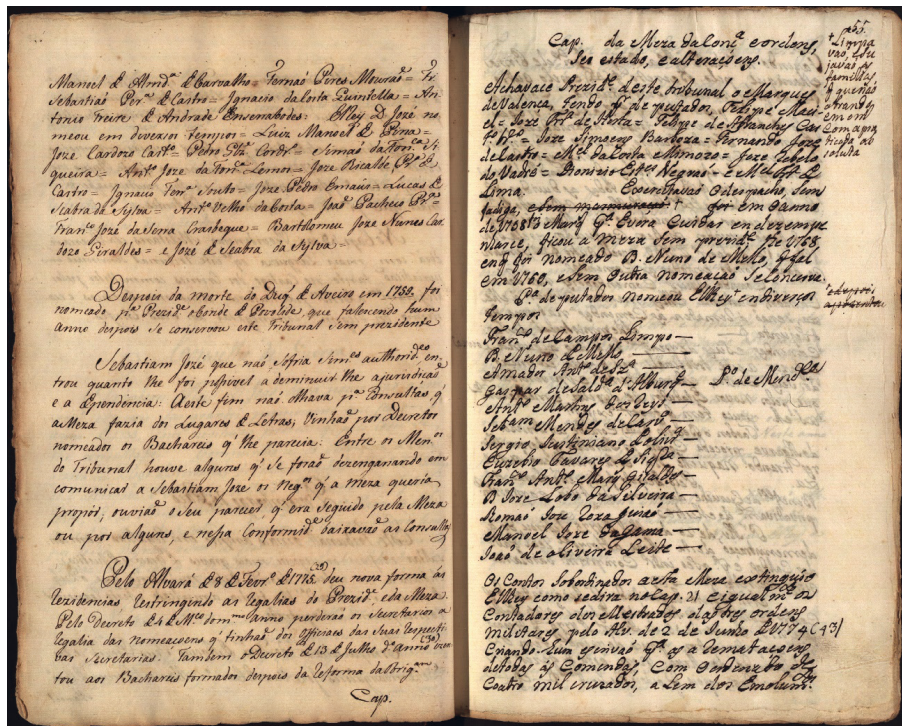 Manoel de Almd.ª de Carvalho = Fernaõ Peres Mouraõ = Fr.
Sebastiaõ Per.ª de Castro = Ignacio da Costa Quintella = An-
tonio Freire de Andrade Enserrabodes: ElRey D. Jozé no-
meou em diversos tempos = Luiz Manoel de Pina =
Joze Cardozo Cast.º = Pedro Cordr.º = Simaõ da Fon.ca Si
queira = Ant.º Joze da Fon.ca Lemos = Joze Ricalde Pr.ª de
Castro = Ignacio Ferr.ª Souto = Joze Pedro Emaus = Lucas de
Seabra da Sylva = Ant.º Velho da Costa = Joaõ Pacheco Pr.ª =
Fran.co Joze da Serra Crasbeque = Bartolomeu Joze Nunes Car
dozo Giraldes = e Joze de Seabra da Sylva =
Despois da morte do Duq.e de Aveiro em 1759. foi
nomeado p.ª Prezid.e o Conde de Povolide, que falescendo hum
anno despois se conservou este Tribunal sem prezidente
Sebastiam Jozé que naõ sofria sem.es authorid.es en-
trou quanto lhe foi possivel a deminuir lhe a jurisdicaõ
e a dependencia: A este fim naõ olhava p.ª consultas, q'
a Meza fazia dos Lugares de Letras, vinhaõ por Decretos
nomeados os Bachareis q' lhe parecia: Entre os Men.os
do Tribunal houve alguns q' se foraõ dezenganando em
comunicar a Sebastiam Joze os Neg.os q' a meza queria
propor; ouviaõ o seu parecer q' era seguido pela Meza
ou por alguns, e nessa conformid.e baixavaõ as Consultas
Pelo Alvará de 8 de Fevr.º de 1775. deu nova forma ás
rezidencias restringindo as regalias do Prezid.e e da Meza
Pelo Decreto de 4 de M.ço do m.mo anno perderaõ os Secretarios a
regalia das nomeaçoens q' tinhaõ dos officiaes das suas respecti
vas Secretarias: Tambem o Decreto de 13 de Julho d.º anno
tou aos Bachareis formados despois da reforma da
Cap.
55.
Cap. da Meza da Conc.ª e ordens,
seo estado, e alteraçoens.
† Limpa
vaõ,
javaõ as
familias
q' queriaõ
em em
Achavace Prezid.e deste tribunal o Marques
de Valença, tendo p.r deputados, Felipe Maci
el = Joze Fr.ª de Horta = Felipe de Abranches Cas
t.º Br.º = Joze Simoens Barboza = Fernando Joze
de Castro = M.el da Costa Mimozo = Joze Rebelo
do Vadre = Dionizio Negraõ = e
Lima. Exercitavaõ o despacho, sem
fadiga, e sem murmuraçaõ † foi em o anno
de 1758 o Marq. G.ª Evora
ficou a meza sem prezid.e the 1768
enq' foi nomeado D. Nuno de Mello,
em 1760, e sem outra nomeaçaõ se conserva.
P.ª deputados nomeou ElRey † en diversos
tempos
Fran.co de Campos Limpo —
D. Nuno de Mello —
Amador Ant.º de Sz.ª —
Gaspar de Sald.ª d'Albuq.e — P.º de Mend.ça
Ant.º Martins dos Reys —
Sebam Mendes de Carv.º —
Sergio Justiniano —
Euzebio Tavares de Siqr.ª —
Fran.co Ant.º Marq. Giraldes —
D. Joze Lobo da Silveira —
Romaõ Joze Roza Guiaõ —
Manoel Joze da Gama —
Joaõ de oliveira Leite —
Os Contos sobordinados a esta Meza extinguio
ElRey como se dira no Cap. 21 e igualm.te os
Contadores dos Mestrados das tres ordens
militares pelo Alv. de 2 de Junho de 1774 (43)
Criando hum escrivaõ G.l p.ª a remetaçoens
de todas as Comendas, com ordenado de
Coatro mil cruzados, alem dos Emolum.tos